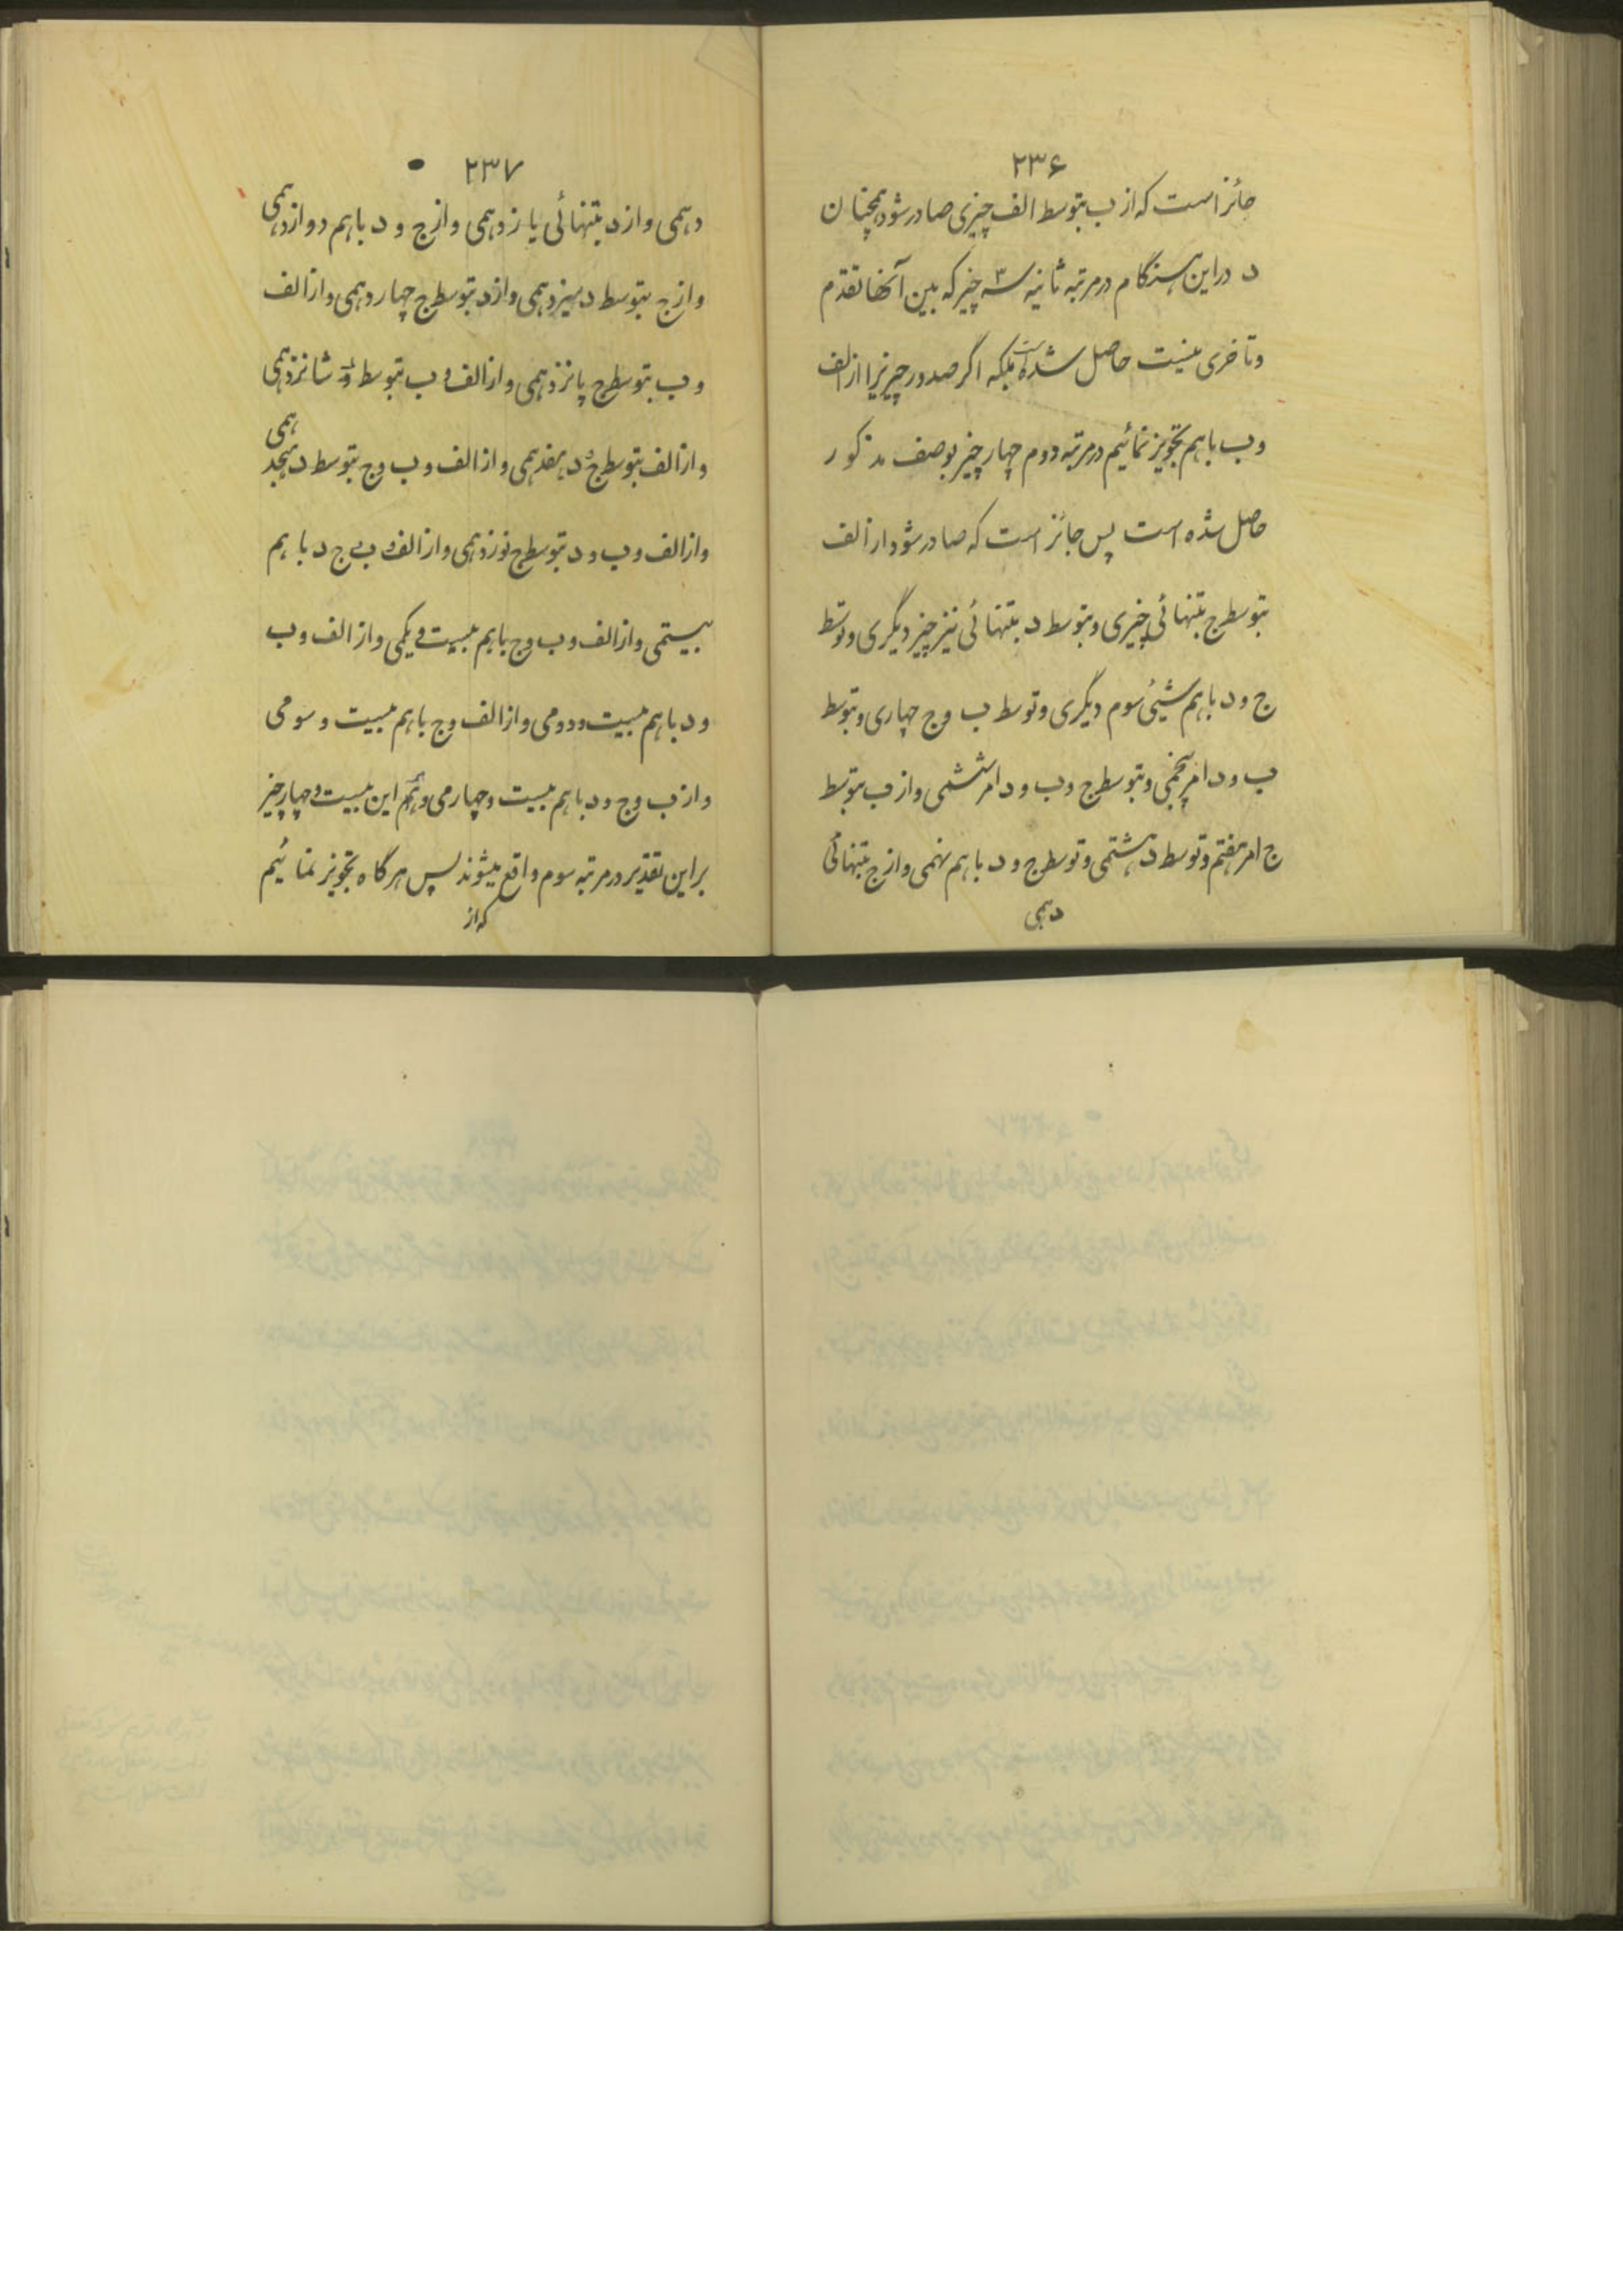 ۲۳۶
جائز است که از ب بتوسط الف چیزی صادر شود همچنان
د در این هنگام در مرتبه ثانیه سه ۳ چیز که بین آنها تقدم
و تاخری نیست حاصل شده است بلکه اگر صدور چیزیرا از الف
و ب باهم تجویز نمائیم در مرتبه دوم چهار چیز بوصف مذکور
حاصل شده است پس جائز است که صادر شود از الف
بتوسط ج بتنهائی چیزی و بتوسط د بتنهائی نیز چیز دیگری و توسط
ج و د باهم شیئی سوم دیگری و توسط ب و ج چهاری و بتوسط
ب و د امر پنجمی و بتوسط ج و ب و د امر ششمی و از ب بتوسط
ج امر هفتم و توسط د هشتمی و توسط ج و د باهم نهمی و از ج بتنهائی
دهمی
۲۳۷
دهمی و از د بتنهائی یازدهمی و از ج و د باهم دوازدهمی
و از ج بتوسط د سیزدهمی و از د بتوسط ج چهاردهمی و از الف
و ب بتوسط ج پانزدهمی و از الف و ب بتوسط د شانزدهمی
و از الف بتوسط ج و د هفدهمی و از الف و ب و ج بتوسط د هیجدهمی
و از الف و ب و د بتوسط ج نوزدهمی و از الف و ب و ج د باهم
بیستمی و از الف و ب و ج باهم بیست و یکمی و از الف و ب
و د باهم بیست و دومی و از الف و ج باهم بیست و سومی
و از ب و ج و د باهم بیست و چهارمی و تمام این بیست و چهار چیز
بر این تقدیر در مرتبه سوم واقع میشوند پس هرگاه تجویز نمائیم
که از